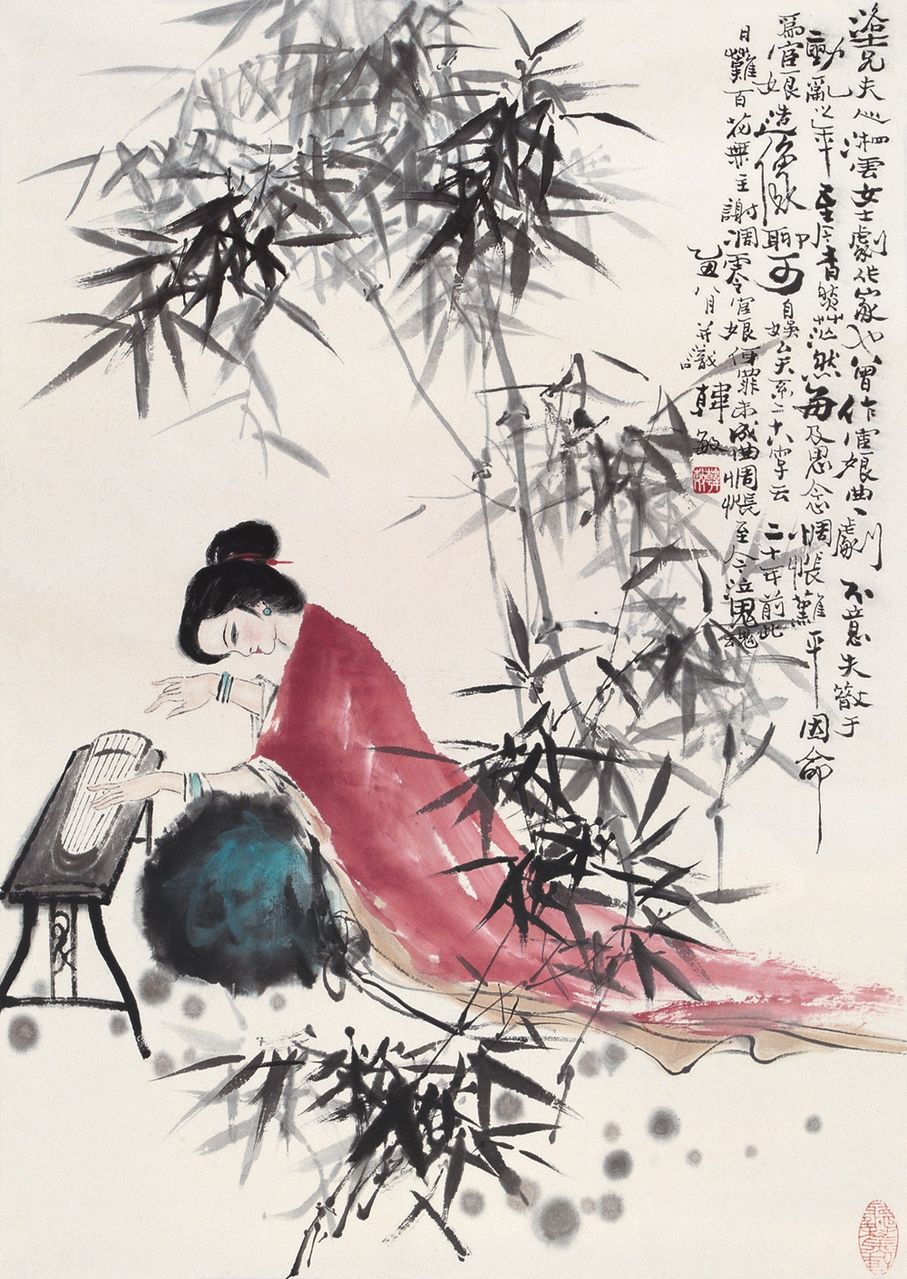 兄夫人湘雲女士劇作家也曾作宦娘曲劇不意失散于
動亂之年至今杳然茫然每及思念惆悵難平因命
為宦娘造像聊可自娛二十八字云二十年前此
日難百花無主謝凋零宦娘何罪未成曲惆悵至今泣鬼魂
乙丑八月并識韓敏
韓敏